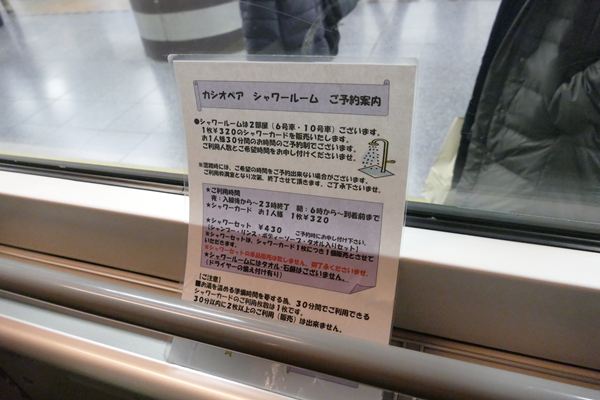 カシオペア シャワールーム ご予約案内
●シャワールームは2部屋（6号車・10号車）ございます。
1枚¥320のシャワーカードを販売いたします。
お1人様30分間のお時間のご予約制でございます。
ご利用人数とご希望時間をお申し付けくださいませ。
※混雑時には、ご希望の時間をご予約出来ない場合がございます。
ご利用枠満室となり次第、終了させて頂きます。ご了承下さいませ。
★ご利用時間
夜：入線後から～23時終了 朝：6時から～到着前まで
★シャワーカード お1人様 1枚¥320
★シャワーセット ¥430 ご予約時にお申し付け下さい。
(シャンプー・リンス・ボディーソープ・タオル入りセット)
★シャワーセットは、シャワーカード1枚につき1個販売とさせて
いただきます。
※シャワーセットの単品販売は致しません。御了承くださいませ。
★シャワールームにはタオル・石鹸はございません。
(ドライヤーの備え付け有り)
［ご注意］
■お湯を温める準備時間を要する為、30分間でご利用できる
シャワーカードのご利用枚数は1枚です。
30分以内に2枚以上のご利用（販売）は出来ません。